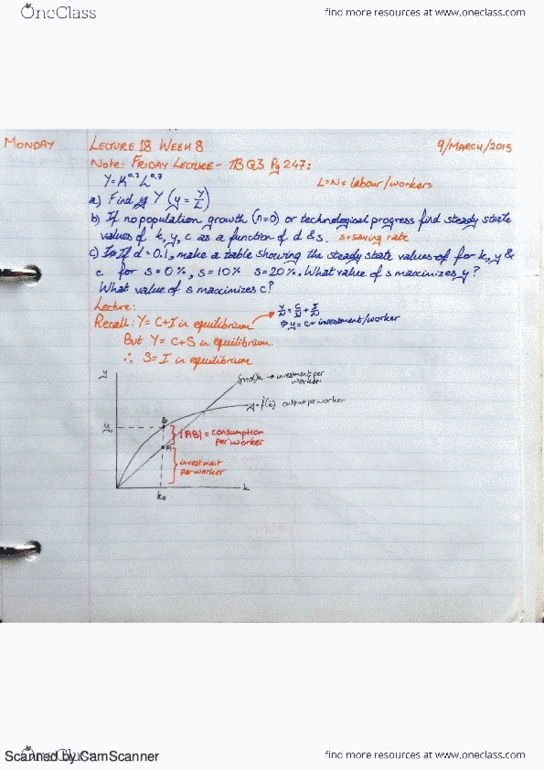 OneClass
find more resources at www.oneclass.com
MONDAY LECTURE 18 WEEK 8 9/MARCH/2015
NOTE: FRIDAY LECTURE - TB Q3 Pg 247:
Y=K^0.3 L^0.7 L=N= labour/workers
a) Find y (y = Y/L)
b) If no population growth (n=0) or technological progress find steady state
values of k, y, c as a function of d & s. s=saving rate
c) If d=0.1, make a table showing the steady state values of for k, y &
c for s=0%, s=10% s=20%. What value of s maximizes y?
What value of s maximizes c?
Lecture:
Recall: Y = C+I in equilibrium
⇒ y = c + investment/worker
But Y = C+S in equilibrium
∴ S=I in equilibrium
y
(n+d)k → investment per
worker
y=f(k) output per worker
B
y₀
|AB| = consumption
per worker
A
investment
per worker
k₀
k
OneClass
Scanned by CamScanner
find more resources at www.oneclass.com